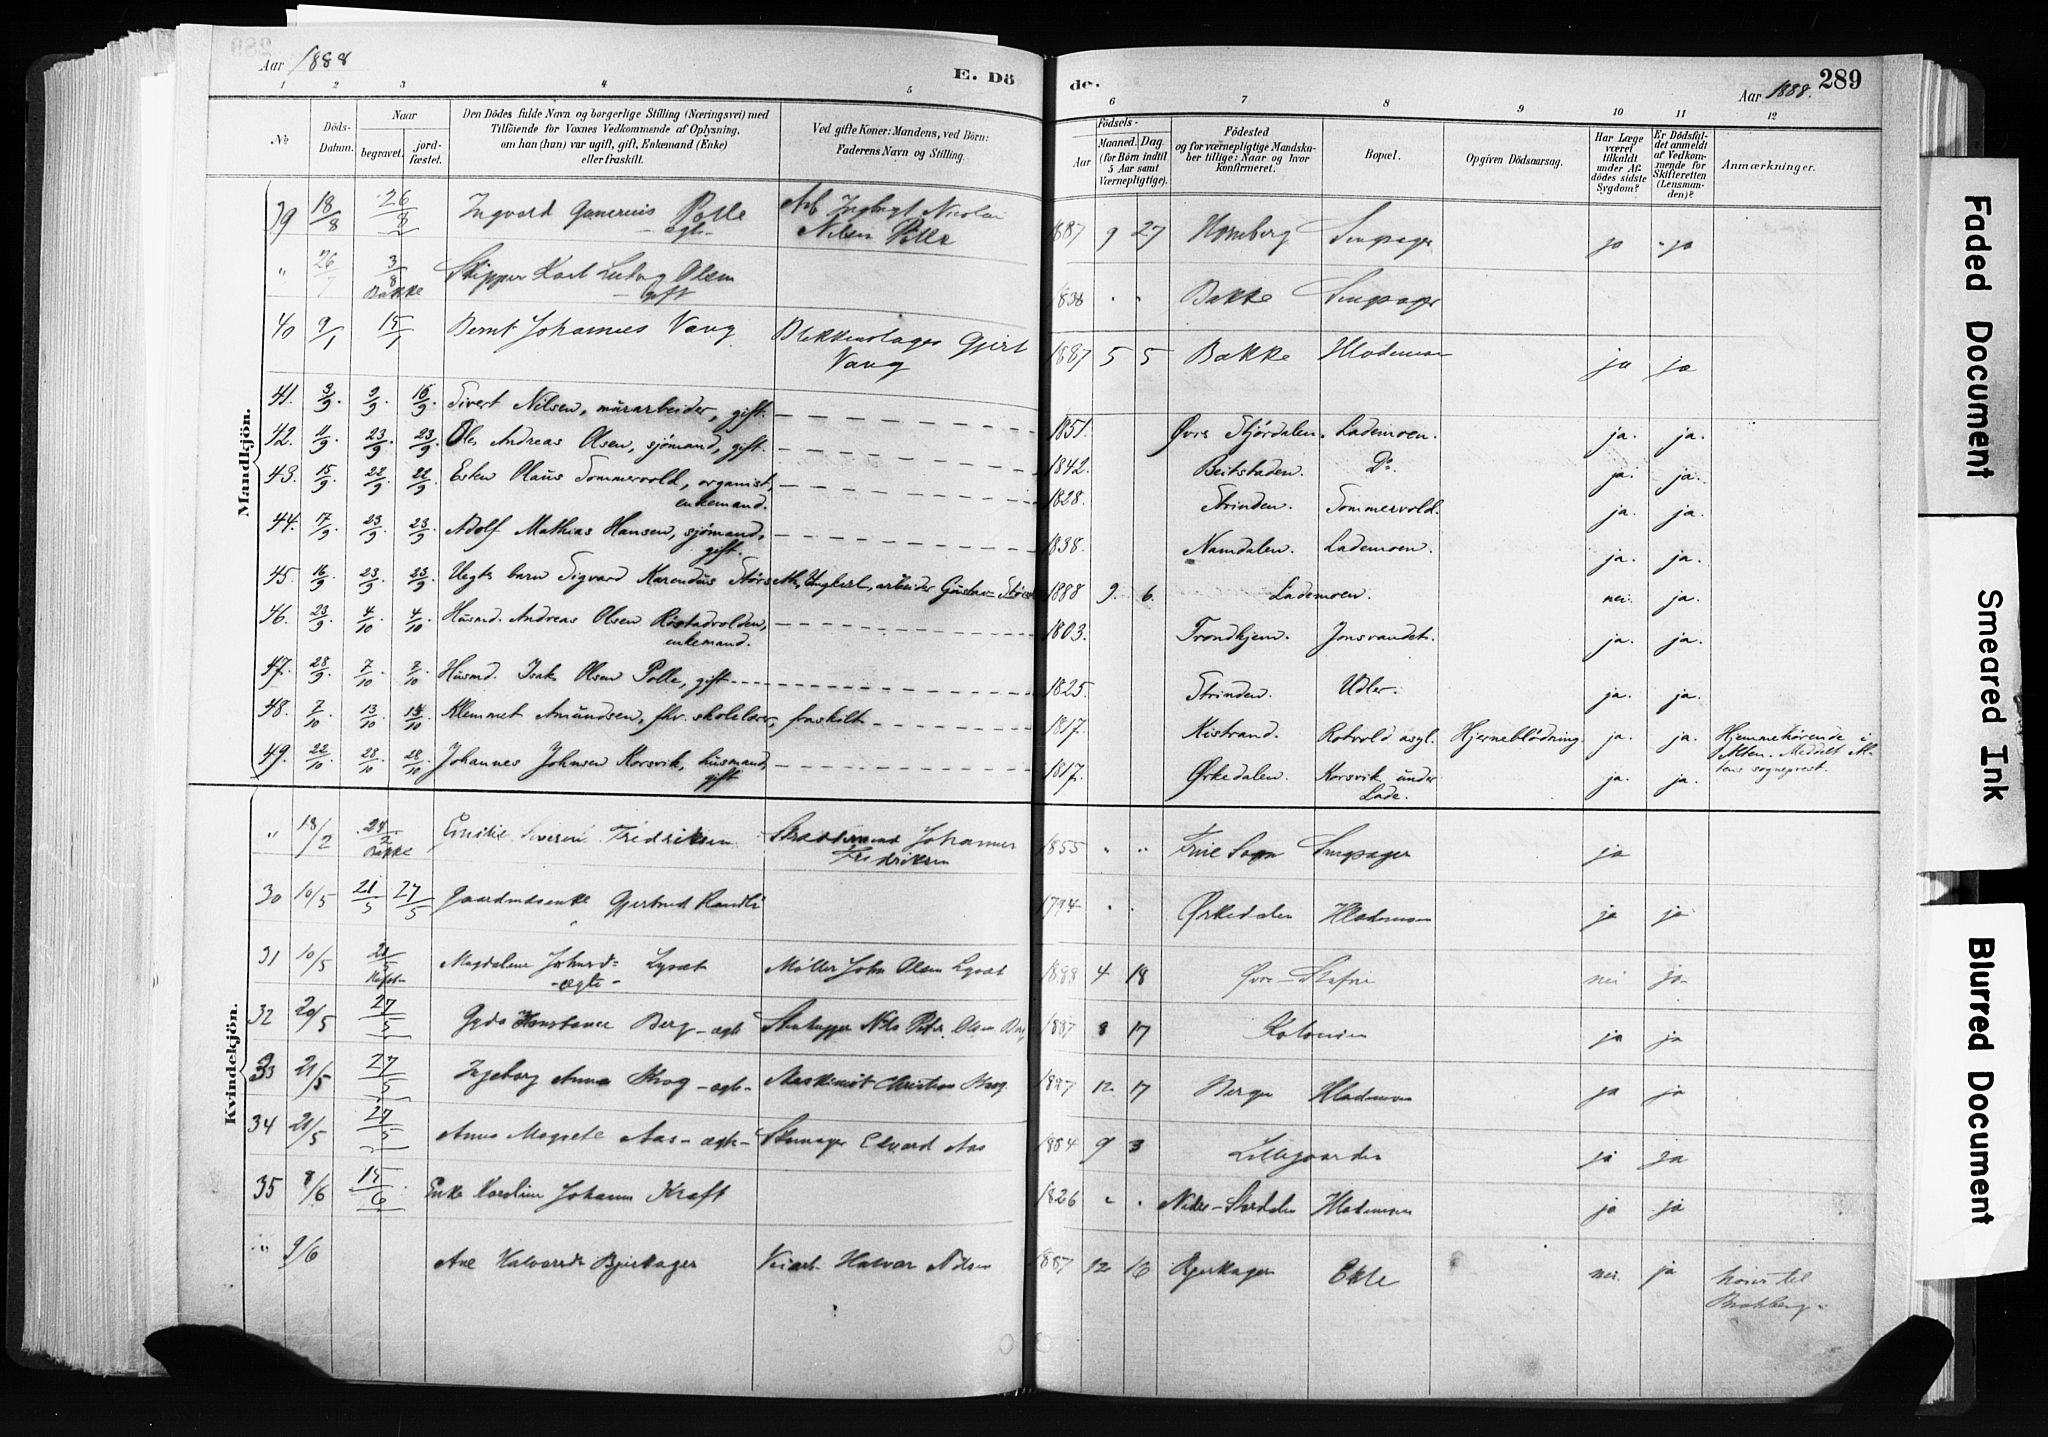 Aar 1888
E. Dö
de.
Aar 1888.
289
1 2 3 4 5 6 7 8 9 10 11 12
No
Döds-Datum.
Naar
begravet.
jord-fæstet.
Den Dödes fulde Navn og borgerlige Stilling (Næringsvei) med
Tilföiende for Voxnes Vedkommende af Oplysning,
om han (hun) var ugift, gift, Enkemand (Enke)
eller fraskilt.
Ved gifte Koner: Mandens, ved Börn:
Faderens Navn og Stilling.
Födsels-
Aar
Maaned. Dag.
(for Börn indtil
5 Aar samt
Værnepligtige).
Födested
og for værnepligtige Mandska-
ber tillige: Naar og hvor
konfirmeret.
Bopæl.
Opgiven Dödsaarsag.
Har Læge
været
tilkaldt
under Af-
dödes sidste
Sygdom?
Er Dödsfal-
det anmeldt
af Vedkom-
mende for
Skifteretten
(Lensman-
den)?
Anmærkninger.
Mandkjön.
39 18/8 26/8 Ingvard Polle Arb Ingbrigt Nicolai 1887 9 27 ja ja
ægte Nilsen Polle
" 26/7 3/8 Skipper Karl Ludvig Olsen 1838 " " Bakke
Bakke gift
40 9/1 15/1 Bernt Johannes Vang Gjert 1887 5 5 Bakke ja ja
Vang
41. 3/9. 9/9. 16/9. Sivert Nilsen, mürarbeider, gift. 1851. Øvre Stjördalen. Lademoen. ja. ja.
42. 11/9. 23/9. 23/9. Ole Andreas Olsen, sjömand, gift. 1842. Beitstaden. Do. ja. ja.
43. 15/9. 22/9. 22/9. Esten Olaüs Sommervold, organist, 1828. Strinden. Sommervold. ja. ja.
enkemand.
44. 17/9. 23/9. 23/9. Adolf Mathias Hansen, sjömand, 1838. Namdalen. Lademoen. ja. ja.
gift.
45. 16/9. 23/9. 23/9. Uegte barn Sigvard Karendüs Störseth, Ungkarl, arbeider Güstav 1888 9. 6. Lademoen. nei. ja.
46. 23/9. 4/10. 4/10. Hüsmd. Andreas Olsen Röstadvolden, 1803. Trondhjem. Jonsvandet. ja. ja.
enkemand.
47. 28/9. 7/10. 7/10. Hüsmd. Isak Olsen Polle, gift 1825. Strinden. Udler. ja. ja.
48. 7/10. 13/10. 14/10. Klemmet Amündsen, fhv. skolelærer, fraskilt 1817. Kistrand. Rotvold asyl. Hjerneblödning. ja. ja. Hjemmehörende i
Alten. Meddelt Al-
tens sogneprest.
49. 22/10. 28/10. 28/10. Johannes Johnsen Korsvik, hüsmand, 1817. Ørkedalen. Korsvik ünder ja. ja.
gift. Lade.
Kvindekjön.
" 18/2 24/2 Emilie Severine Fredriksen Johannes 1855 " " ja
Bakke Fredriksen
30 10/5 21/5 27/5 Gaardmdsenke Gjertrud 1794 " " Ørkedalen Hlademoen ja ja
31 10/5 21/5 Magdalena Johnsd= Møller John Olsen 1888 4 18 Øvre- nei ja
-ægte-
32 20/5 27/5 Gyda Konstance Berg - ægte Nils Peter Olsen Berg 1887 8 17 Kolonien ja ja
33 21/5 27/5 Ingeborg Anna - ægte- Maskinist Christian 1887 12 17 Bergen Hlademoen ja ja
34 21/5 27/5 Anna Magrete Aas - ægte- Edvard Aas 1884 9 3 Lillegaarden ja ja
35 8/6 15/6 Enke Karoline Johanna Kraft 1826 " " Nedre-Stördalen Hlademoen ja ja
" 9/6 Ane Halvorsdr Bjerkager Halvor Nilsen 1887 12 16 Bjerkager Ekle nei. ja hører til
Faded Document
Smeared Ink
Blurred Document